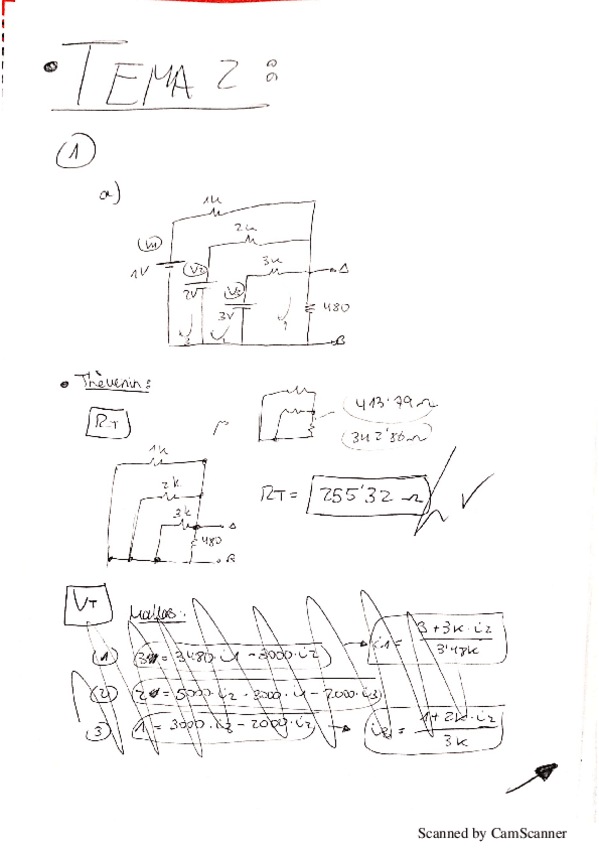 • TEMA 2:
1
a)
1k
2k
V1
1V
V2
3k
A
2V
V3
3V
480
B
• Thèvenin:
RT
413'79 Ω
342'86 Ω
1k
2k
3k
A
480
B
RT = 255'32 Ω
VT
Mallas:
1) 3 = 3480·i1 - 3000·i2 → i1 = 3+3k·i2 / 3'48k
3) 1 = 3000·i3 - 2000·i2 → 1+2k·i2 / 3k
Scanned by CamScanner